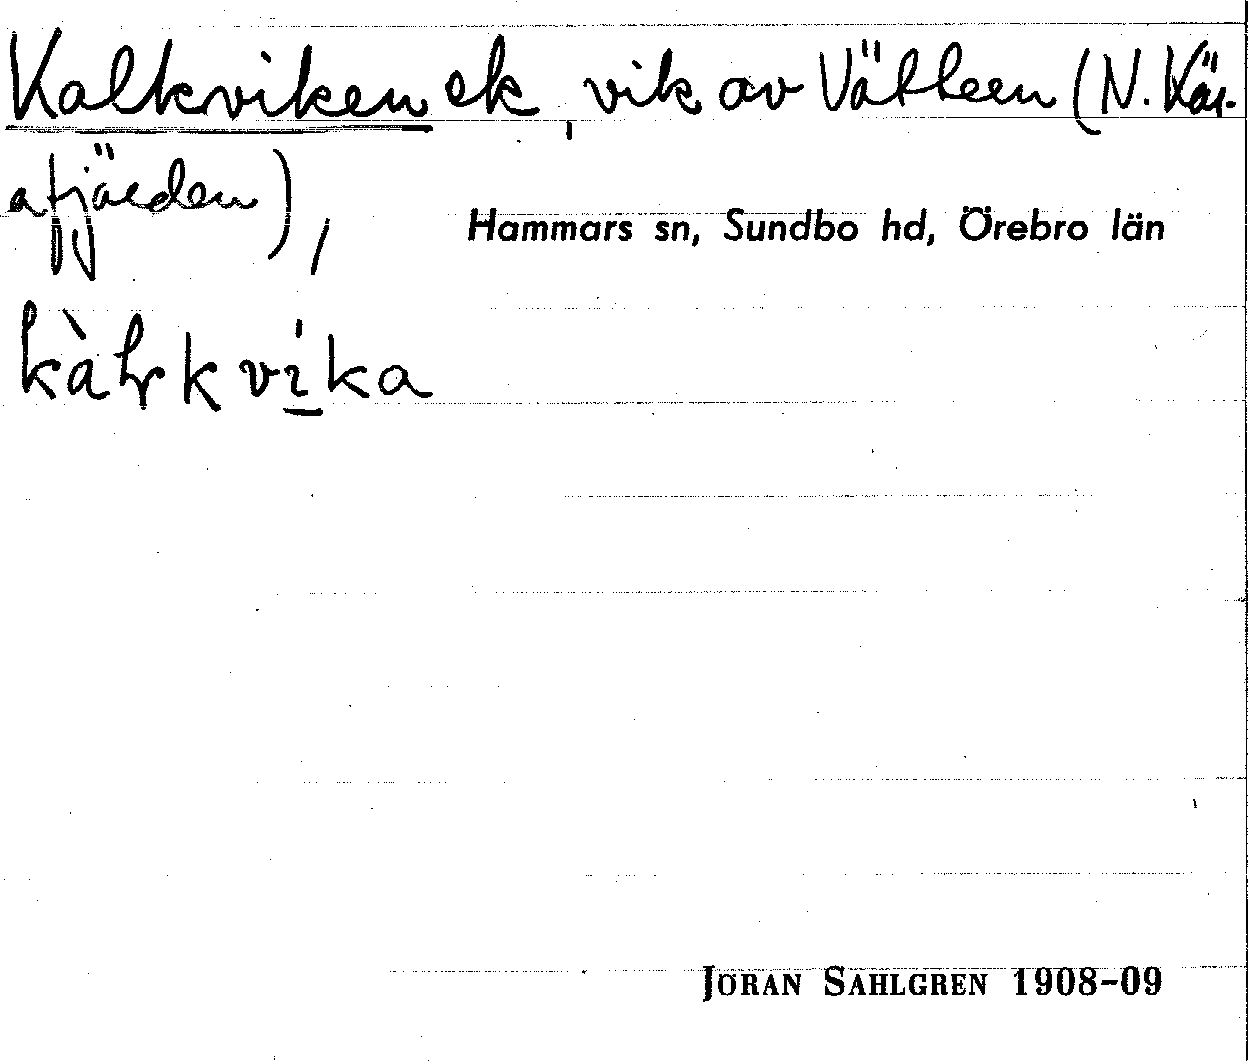 Kalkviken ek, vik av Vättern (N. Kär-
rafjärden),
Hammars sn, Sundbo hd, Örebro län
JÖRAN SAHLGREN 1908–09